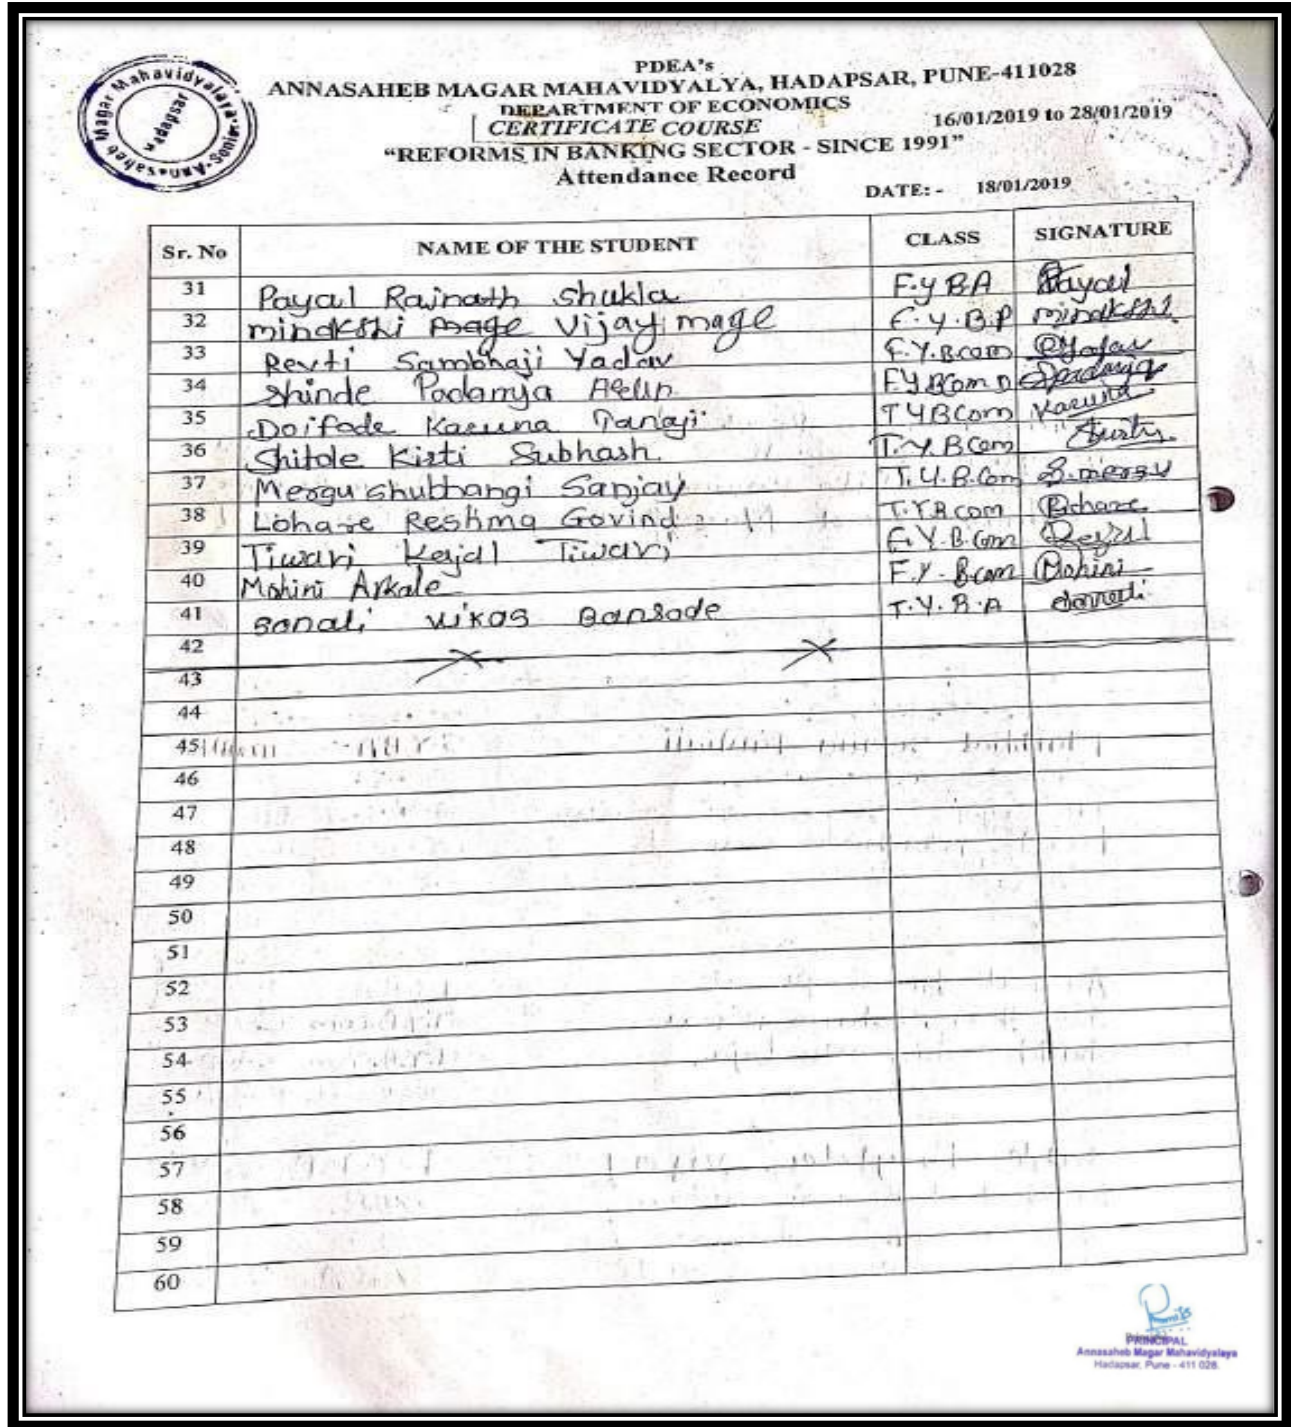 PDEA's
ANNASAHEB MAGAR MAHAVIDYALYA, HADAPSAR, PUNE-411028
DEPARTMENT OF ECONOMICS
CERTIFICATE COURSE 16/01/2019 to 28/01/2019
"REFORMS IN BANKING SECTOR - SINCE 1991"
Attendance Record
DATE: - 18/01/2019
Annasaheb Magar Mahavidyalaya
Hadapsar
Sr. No NAME OF THE STUDENT CLASS SIGNATURE
31 Payal Rajnath Shukla F.Y BA Payal
32 minakshi mage vijay mage F.Y.B.P minakshi
33 Revti Sambhaji Yadav F.Y.B.com
34 Shinde Padamja F.Y.BCom D
35 Doifode Karuna Tanaji T YBCom Karuna
36 Shitole Kirti Subhash. T.Y.BCom
37 Mergu shubhangi Sanjay T.Y.B.Com S.mergu
38 Lohare Reshma Govind T.Y.B.com
39 Tiwari Kajal Tiwari F.Y.B.Com
40 Mohini Arkale F.Y.Bcom Mohini
41 sonali vikas Bansode T.Y.B.A sonali
42
43
44
45
46
47
48
49
50
51
52
53
54
55
56
57
58
59
60
PRINCIPAL
Annasaheb Magar Mahavidyalaya
Hadapsar, Pune - 411 028.